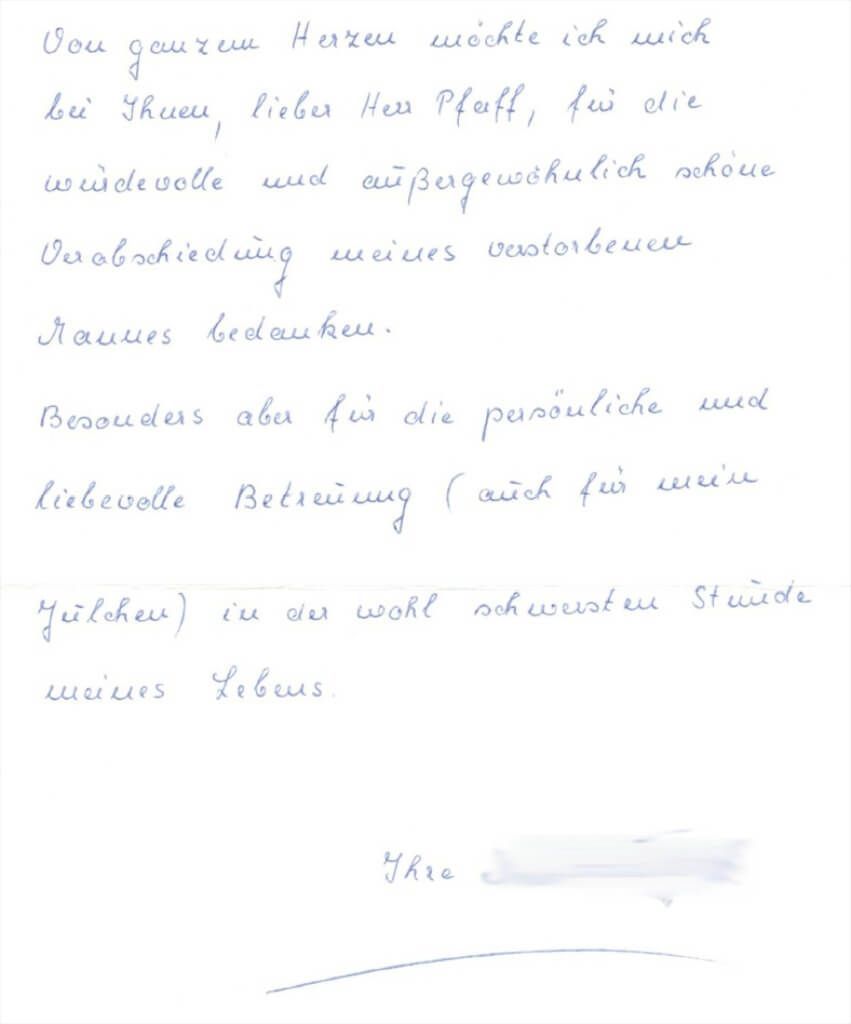 Von ganzem Herzen möchte ich mich
bei Ihnen, lieber Herr Pfaff, für die
würdevolle und außergewöhnlich schöne
Verabschiedung meines verstorbenen
Mannes bedanken.
Besonders aber für die persönliche und
liebevolle Betreuung (auch für mein
Julchen) in der wohl schwersten Stunde
meines Lebens.
Ihre